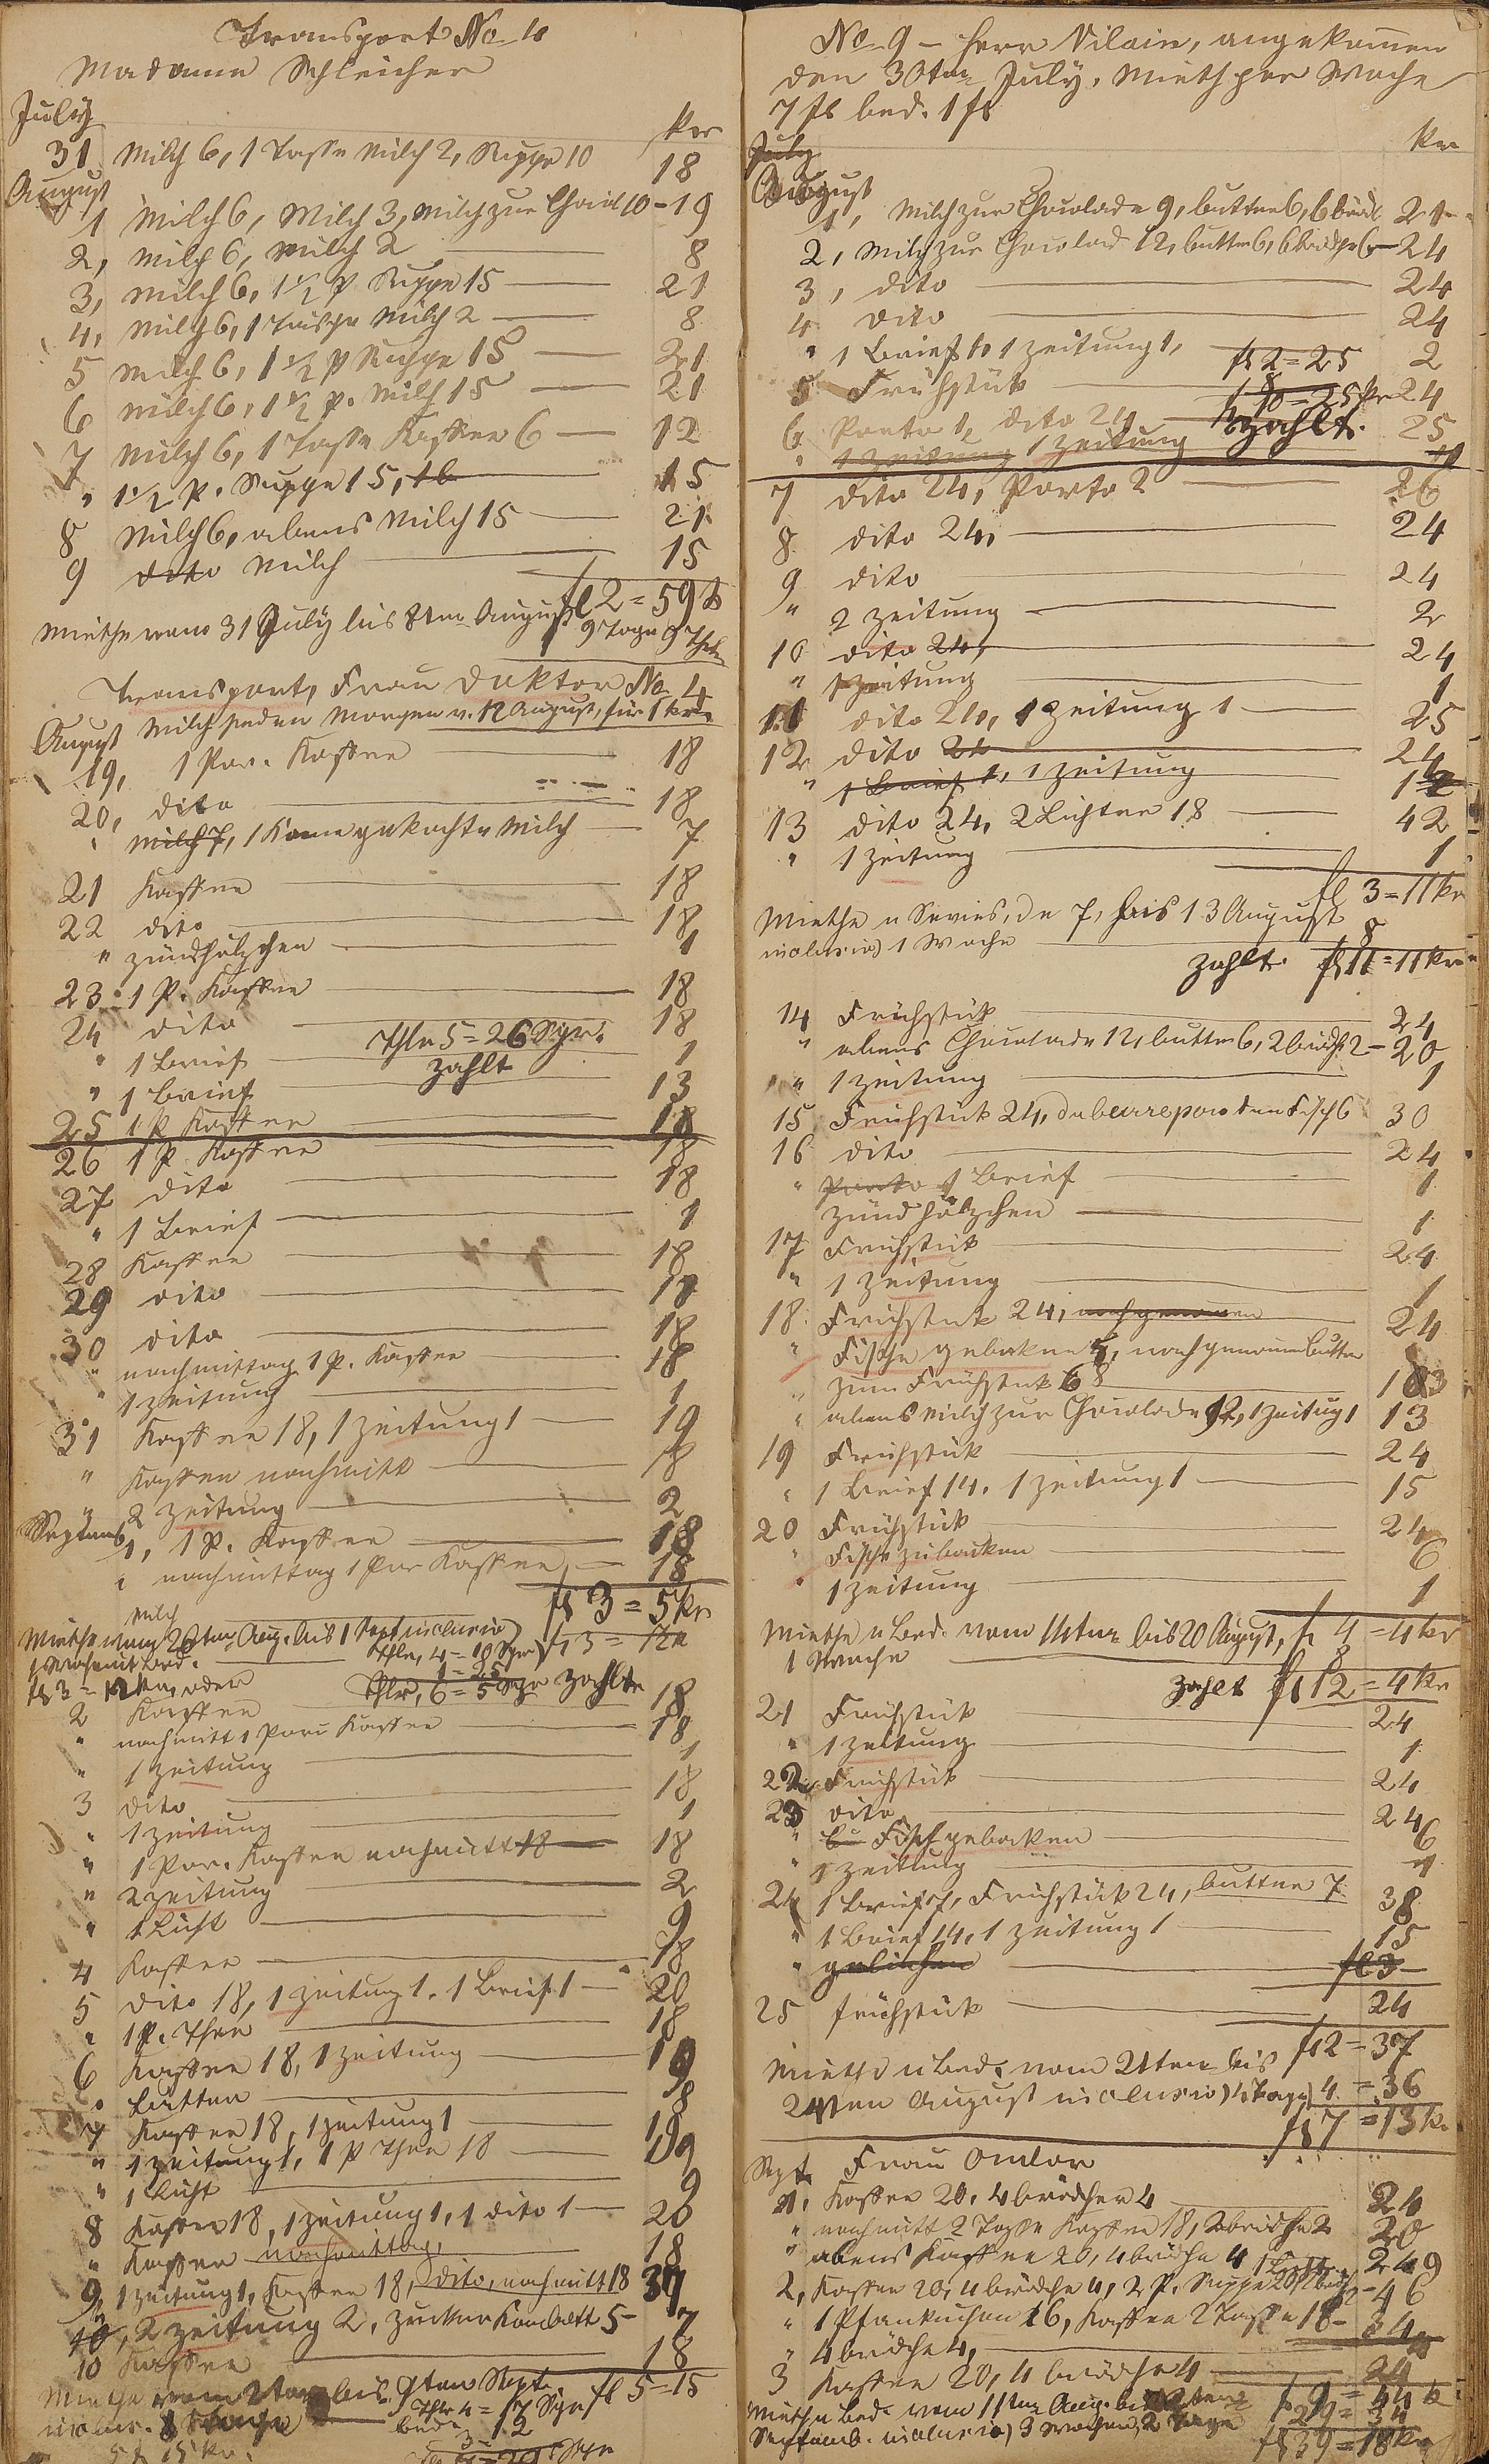 Transport No 10
Madame Schleicher
July
kr
31 Milch 6, 1 Tasse Milch 2, Suppe 10 18
August
1 Milch 6, Milch 3, Milch zur Chocol 10 - 19
2, Milch 6, Milch 2 8
3, Milch 6, 1 1/2 P Suppe 15 21
4, Milch 6, 1 Tasse Milch 2 8
5 Milch 6, 1 1/2 P Suppe 15 21
6 Milch 6, 1 1/2 P. Milch 15 21
7 Milch 6, 1 Tasse Kaffee 6 12
" 1 1/2 P. Suppe 15, 15
8 Milch 6, abens Milch 15 21
9 dito Milch 15
fl 2 = 59 kr
Miethe vom 31 July bis 8ten August 9 Tage 9 Thlr
Transport, Frau Doktor No 4
August Milch jeden Morgen v. 12 August, für 1 kr
19, 1 Por. Kaffee 18
20, dito 18
" Milch 7, 1 Kanne gekochte Milch 7
21 Kaffee 18
22 dito 18
" Zündhölzchen 1
23 1 P. Kaffee 18
24 dito 18
Thlr 5 = 26 Sgr.
" 1 Brief 1
zahlt
" 1 Brief 13
25 1 P Kaffee 18
26 1 P. Kaffee 18
27 dito 18
" 1 Brief 1
28 Kaffee 18
29 dito 18
30 dito 18
" nachmittag 1 P. Kaffee 18
" 1 Zeitung 1
31 Kaffee 18, 1 Zeitung 1 19
" Kaffee nachmitt 18
" 2 Zeitung 2
Septemb 1, 1 P. Kaffee 18
" nachmittag 1 Por Kaffee 18
fl 3 = 5 kr
Milch
Miethe vom 26ten Aug. bis 1 Sept inclusiv
1 Woche mit Bed. Thlr, 4 = 10 Sgr fl 3 = 12 kr
1 = 25
fl 3 = 12 kr, oder Thlr, 6 = 5 Sgr zahlt
2 Kaffee 18
" nachmitt 1 Por Kaffee 18
" 1 Zeitung 1
3 dito 18
" 1 Zeitung 1
" 1 Por. Kaffee nachmitt 18 18
" 2 Zeitung 2
" 1 Licht 9
4 Kaffee 18
5 dito 18, 1 Zeitung 1. 1 Brief 1 20
" 1 P. Thee 18
6 Kaffee 18, 1 Zeitung 19
" Butter 8
7 Kaffee 18, 1 Zeitung 1 19
" 1 Zeitung 1, 1 P Thee 18 19
" 1 Licht 9
8 Kaffee 18, 1 Zeitung 1, 1 dito 1 20
" Kaffee nachmittag, 18
9, 1 Zeitung 1, Kaffee 18, dito, nachmitt 18 37
10, 2 Zeitung 2, Zucker 5 7
10 Kaffee 18
Miethe vom 2ten bis 9ten Sept. fl 5 = 15
inclus. 8 Thlr 4 = Sgr
Bed.
No 9 - Herr Vilain, angekommen
den 30ten July, Mieth per Woche
7 fl bed. 1 fl
July
kr
August
1, Milch zur Chocolade 9, butter 6, 6 brödc 21
2, Milch zur Chocolad 12, butter 6, 6 brödche 6 - 24
3, dito 24
4 dito 24
" 1 Brief 1, 1 Zeitung 1, 2
fl 2 = 25
5 Frühstük 24
fl 10 = 25 kr
6 Porto 1, dito 24 25
zahlt.
" 1 Zeitung 1 Zeitung
7 dito 24, Porto 2 26
8 dito 24, 24
9 dito 24
" 2 Zeitung 2
10 dito 24, 24
" 1 Zeitung 1
11 dito 24, 1 Zeitung 1 25
12 dito 24 24
" 1 Brief 1, 1 Zeitung 1
13 dito 24, 2 Lichter 18 42
" 1 Zeitung 1
fl 3 = 11 kr
Miethe u Servies, de 7, bis 13 August
inclusiv 1 Woche 8
zahlt. fl 11 = 11 kr
14 Frühstük 24
" abens Chocolade 12, butter 6, 2 brödch 2 - 20
" 1 Zeitung 1
15 Frühstük 24, den Fisch 6 30
16 dito 24
" Porto 1 Brief 1
Zündhölzchen 1
17 Frühstük 24
" 1 Zeitung 1
18 Frühstük 24, nachgenomen 24
" Fische gebaken 5, nachgenomen Butter
" zum Frühstük 8 13
" abens Milch zur Chocolade 12, 1 Zeitug 1 13
19 Frühstük 24
" 1 Brief 14. 1 Zeitung 1 15
20 Frühstük 24
" Fische zu backen 6
" 1 Zeitung 1
Miethe u Bed. vom 14ten bis 20 August, fl 4 = 4 kr
1 Woche 8
zahlt fl 12 = 4 kr
21 Frühstük 24
" 1 Zeitung 1
22 Frühstük 24
23 dito 24
" Fisch gebacken 6
" 1 Zeitung 1
24 1 Brief 7, Frühstück 24, butter 7 38
" 1 Brief 14, 1 Zeitung 1 15
" geliehen fl 3
25 frühstük 24
fl 2 = 37
Miethe u Bed. vom 21ten bis
24ten August inclusiv) 4 Tage) 4 = 36
fl 7 = 13 kr
Sept Frau Omlor
1. Kaffee 20, 4 brödchen 4 24
" nachmitt 2 Tasse Kaffee 18, 2 brödche 2 20
" abens Kaffee 20, 4 brödche 4 24
2, Kaffee 20, 4 brödche 4, 2 P. Suppe 20 46
" 1 Pfankuchen 16, Kaffee 2 Tasse 18 - 34
" 4 brödche 4,
3 Kaffee 20, 4 brödche 4 24
Mieth u Bed. vom 11ten Aug. bis
Septemb. inclusiv) 3 Wochen, 2 Tage
fl 39 = 18 kr